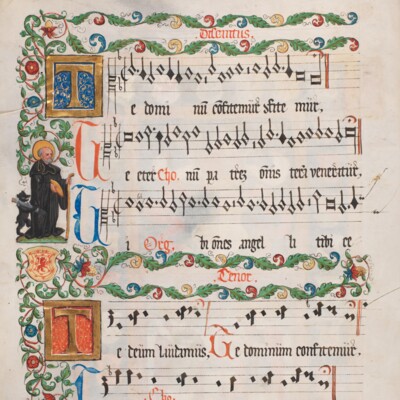 Discantus.
Te domi nū cōfitemur ꝯfite mur.
Te eter Cho. nū pa trez omīs terra veneretur
Ti Org. bi om̄es angel li tibi ce
Tenor.
Te deum laudamus, Te dominum confitemur.
T Cho.